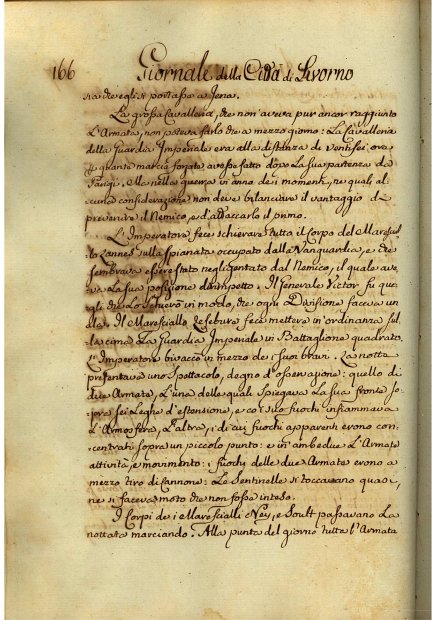 166 Giornale della Città di Livorno
sia che egli si portasse a Jena.
La grossa Cavalleria, che non aveva pur ancor raggiunto
L'Armata, non poteva farlo che a mezzo giorno: La Cavalleria
della Guardia Imperiale era alla distanza di ventisei ore
quante marcia forzate avesse fatto dopo la sua partenza da
Parigi. Ma nella guerra vi anno dei momenti, ne quali al-
cuna considerazione non deve bilanciare il vantaggio di
prevenire il Nemico, ed attaccarlo il primo.
L'Imperatore fece schierare tutta il Corpo del Maresciallo
Lannes sulla spianata occupato dalla Vanguardia, e che
sembrava essere stato negligentato dal Nemico, il quale ave-
va la sua posizione dirimpetto. Il Generale Victor fu que-
gli che Lo Schierò in modo, che ogni Divisione faceva un
ala. Il Maresciallo Lefebure fece mettere in ordinanza sul-
la cima La Guardia Imperiale in Battaglione quadrato.
L'Imperatore bivaccò in mezzo dei suoi bravi. La notte
presentava uno Spettacolo, degno d'osservazione: quello di
due Armate, L'una delle quali Spiegava La sua fronte so-
pra sei Leghe d'estensione, e coi suoi fuochi infiammava
L'Atmosfera, L'altra, i di cui fuochi apparenti erono con-
centrati sopra un piccolo punto: e in ambedue L'Armate
attività, e movimento: i fuochj delle due Armate erono a
mezzo tiro di Cannone: Le Sentinelle si toccavano quasi,
ne si faceva moto che non fosse inteso.
I Corpi dei Marescialli Ney, e Soult passavano La
nottata marciando. Alla punta del giorno tutta l'Armata